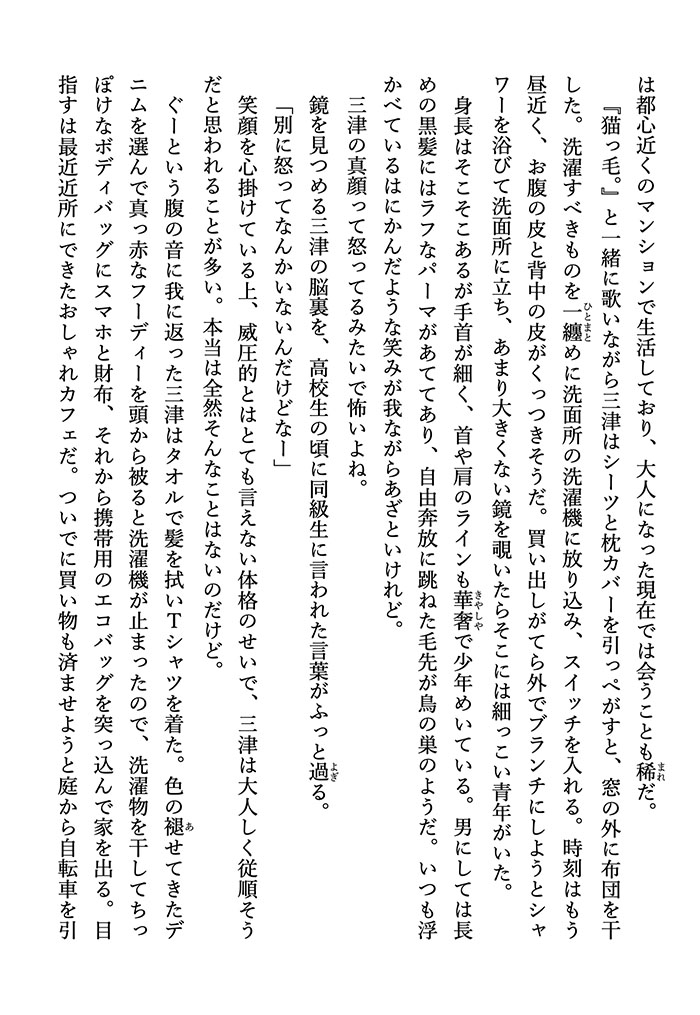 は都心近くのマンションで生活しており、大人になった現在では会うことも稀だ。
『猫っ毛。』と一緒に歌いながら三津はシーツと枕カバーを引っぺがすと、窓の外に布団を干
した。洗濯すべきものを一纏めに洗面所の洗濯機に放り込み、スイッチを入れる。時刻はもう
昼近く、お腹の皮と背中の皮がくっつきそうだ。買い出しがてら外でブランチにしようとシャ
ワーを浴びて洗面所に立ち、あまり大きくない鏡を覗いたらそこには細っこい青年がいた。
身長はそこそこあるが手首が細く、首や肩のラインも華奢で少年めいている。男にしては長
めの黒髪にはラフなパーマがあててあり、自由奔放に跳ねた毛先が鳥の巣のようだ。いつも浮
かべているはにかんだような笑みが我ながらあざといけれど。
三津の真顔って怒ってるみたいで怖いよね。
鏡を見つめる三津の脳裏を、高校生の頃に同級生に言われた言葉がふっと過る。
「別に怒ってなんかいないんだけどなー」
笑顔を心掛けている上、威圧的とはとても言えない体格のせいで、三津は大人しく従順そう
だと思われることが多い。本当は全然そんなことはないのだけど。
ぐーという腹の音に我に返った三津はタオルで髪を拭いTシャツを着た。色の褪せてきたデ
ニムを選んで真っ赤なフーディーを頭から被ると洗濯機が止まったので、洗濯物を干してちっ
ぽけなボディバッグにスマホと財布、それから携帯用のエコバッグを突っ込んで家を出る。目
指すは最近近所にできたおしゃれカフェだ。ついでに買い物も済ませようと庭から自転車を引